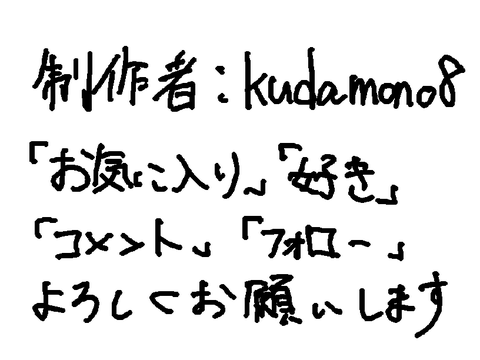 制作者:kudamono8
「お気に入り」「好き」
「コメント」「フォロー」
よろしくお願いします